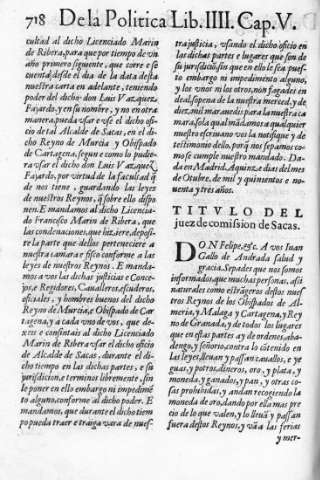 718 De la Politica Lib. IIII. Cap. V.
cultad al dicho Licenciado Marin
de Ribera, para que por tiempo de vn
año primero siguiente, que corre e se
cuenta, desde el dia de la data desta
nuestra carta en adelante, teniendo
poder del dicho don Luis Vazquez
Fajardo, y en su nombre, y no en otra
manera, pueda vsar e vse el dicho ofi-
cio de tal Alcalde de Sacas, en el di-
cho Reyno de Murcia y Obispado
de Cartagena, segun e como lo pudie-
ra vsar el dicho don Luis Vazquez
Fajardo, por virtud de la facultad q̃
de nos tiene, guardando las leyes
de nuestros Reynos, q̃ sobre ello dispo
nen. E mandamos al dicho Licencia-
do Francisco Marin de Ribera, que
las condenaciones, que hiziere, deposi-
te la parte que dellos perteneciere a
nuestra camara e fisco conforme a las
leyes de nuestros Reynos. E manda-
mos a vos las dichas justicias e Conce-
jos, e Regidores, Caualleros, escuderos,
oficiales, y hombres buenos del dicho
Reyno de Murcia, e Obispado de Car
tagena, y a cada vno de vos, que de-
xeis e consintais al dicho Licenciado
Marin de Ribera vsar el dicho oficio
de Alcalde de Sacas, durante el di-
cho tiempo en las dichas partes, e su
jurisdicion, e terminos libremente, sin
le poner en ello embargo ni impedimẽ
to alguno, conforme al dicho poder. E
mandamos, que durante el dicho tiem
po pueda traer e traiga vara de nues-
tra justicia, vsando el dicho oficio en
las dichas partes y lugares que son de
su jurisdicion, sin que en ello le sea pues-
to embargo ni impedimento alguno,
y los vnos ni los otros, non fagades en
deal, so pena de la nuestra merced, y de
diez mil marauedis para la nuestra ca
mara, so la qual mãdamos a qualquier
nuestro escriuano vos la notifique y de
testimonio dello, porq̃ nos sepamos co-
mo se cumple nuestro mandado. Da-
da en Madrid, A quinze dias del mes
de Otubre, de mil y quinientos e no-
uenta y tres años.
TITVLO DEL
juez de comision de Sacas.
DON Felipe, &c. A vos Iuan
Gallo de Andrada salud y
gracia. Sepades que nos somos
informados, que muchas personas, assi
naturales como estrãgeros destos nues
tros Reynos de los Obispados de Al-
meria, y Malaga y Cartagena, y Rey
no de Granada, y de todos los lugares
que en essas partes ay de ordenes, aba-
dengo, y señorio, contra lo cõtenido en
las leyes, lleuan y passan cauallos, e ye
guas, y potros, dineros, oro, y plata, y
moneda, y ganados, y pan, y otras co-
sas prohibidas, y andan recogiendo la
moneda de oro, dando por ella mas pre
cio de lo que valen, y lo lleuã y passan
fuera destos Reynos, y vãn a las ferias
y mer-